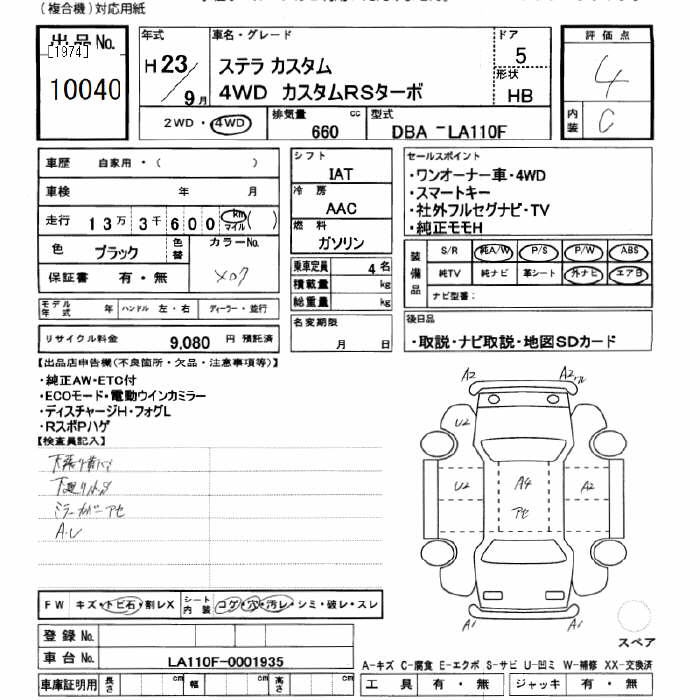 (複合機)対応用紙
出品No.
[1974]
10040
年式
H23/9月
車名・グレード
ステラ カスタム
4WD カスタムRSターボ
ドア
5
形状
HB
評価点
4
内装
C
2WD・4WD
排気量 660 cc
型式 DBA -LA110F
車歴 自家用・( )
車検 年 月
走行 13万3千600 km マイル ( )
色 ブラック
色替
カラーNo.
X07
保証書 有・無
モデル年式 年 ハンドル 左・右 ディーラー・並行
リサイクル料金 9,080 円 預託済
シフト
IAT
冷房
AAC
燃料
ガソリン
乗車定員 4名
積載量 kg
総重量 kg
名変期限
月 日
セールスポイント
・ワンオーナー車・4WD
・スマートキー
・社外フルセグナビ・TV
・純正モモH
装備品
S/R 純A/W P/S P/W ABS
純TV 純ナビ 革シート 外ナビ エアB
ナビ型番:
後日品
・取説・ナビ取説・地図SDカード
【出品店申告欄(不良箇所・欠品・注意事項等)】
・純正AW・ETC付
・ECOモード・電動ウインカミラー
・ディスチャージH・フォグL
・RスポPハゲ
【検査員記入】
ミラーカバーアセ
A.U
A2
A2
U2
U2
A4
アセ
A2
A1
A1
スペア
FW キズ・トビ石・割レX
シート内装 コゲ・穴・汚レ・シミ・破レ・スレ
登録No.
車台No. LA110F-0001935
車庫証明用 長さ cm 幅 cm 高さ cm
A-キズ C-腐食 E-エクボ S-サビ U-凹ミ W-補修 XX-交換済
工具 有・無 ジャッキ 有・無